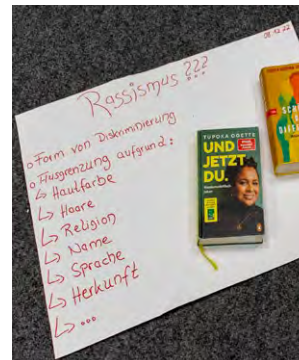 08.12.22
Rassismus ???
o Form von Diskriminierung
o Ausgrenzung aufgrund:
↳ Hautfarbe
↳ Haare
↳ Religion
↳ Name
↳ Sprache
↳ Herkunft
↳ ...
TUPOKA OGETTE
UND
JETZT
DU.